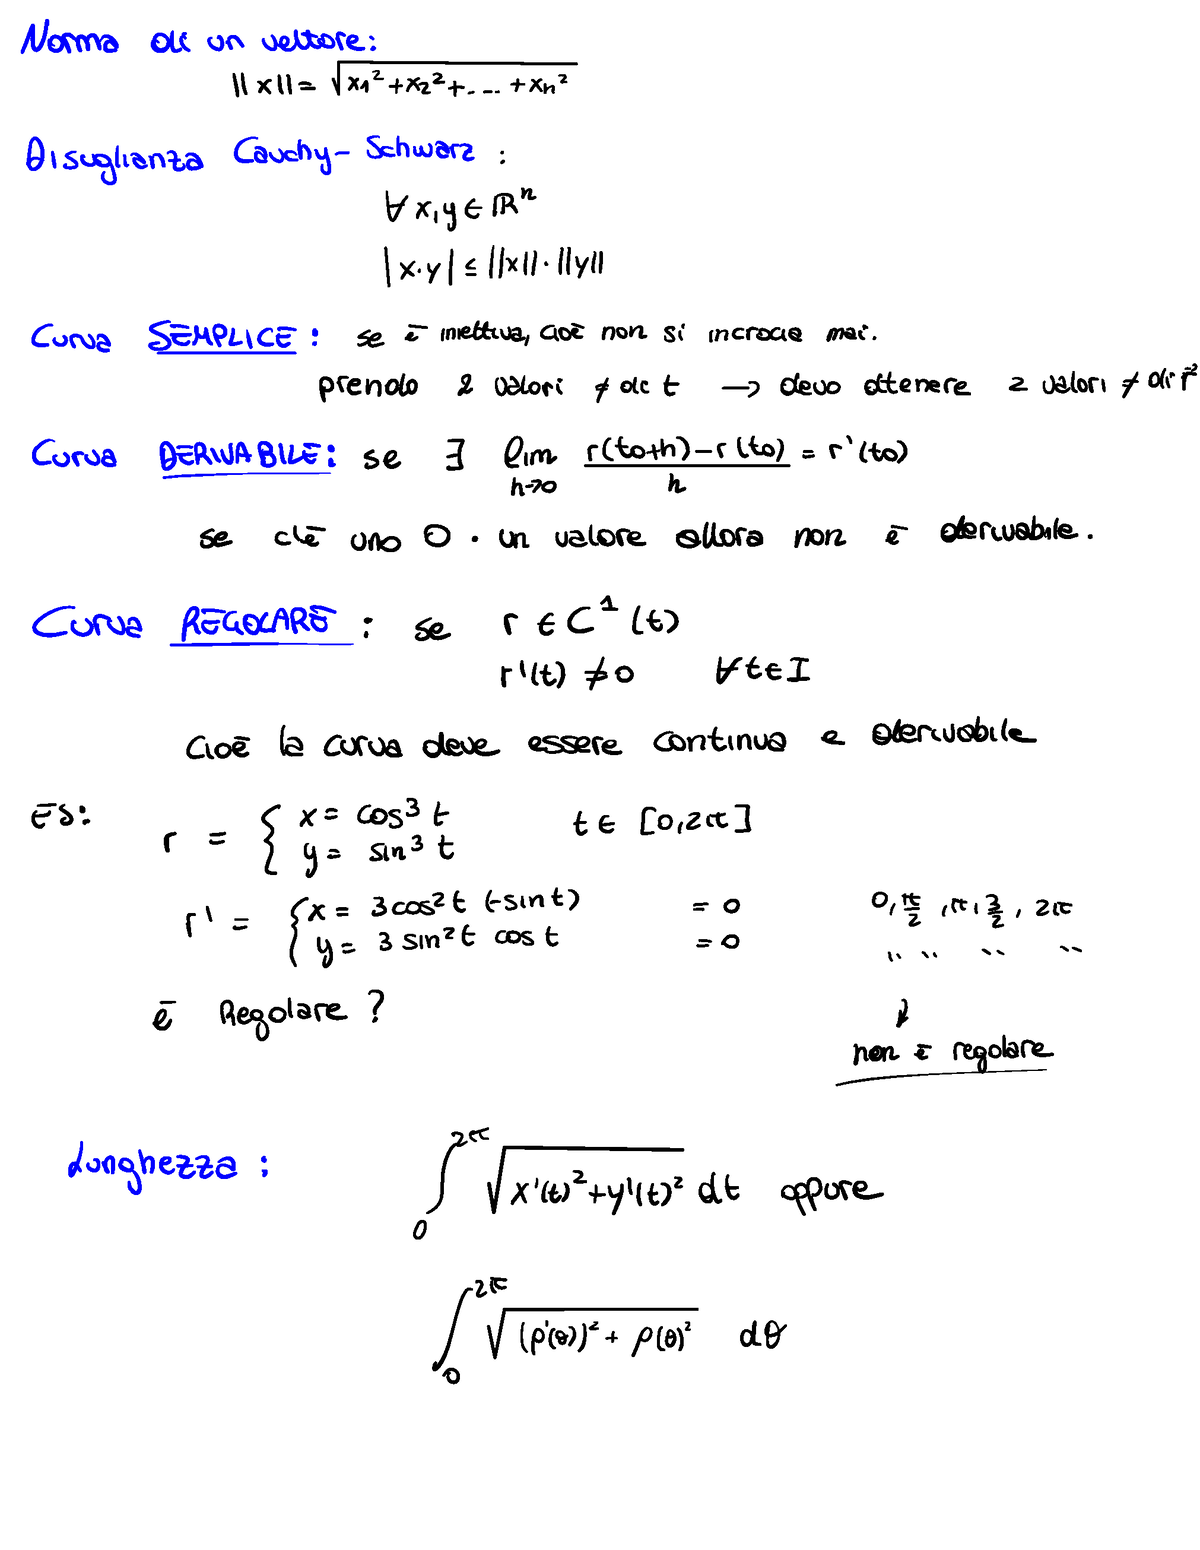 Norma di un vettore:
||x|| = √x₁² + x₂² + .... + xₙ²
Disuglianza Cauchy - Schwarz :
∀ x,y ∈ ℝⁿ
|x·y| ≤ ||x|| · ||y||
Curva SEMPLICE : se è iniettiva, cioè non si incrocia mai.
prendo 2 valori ≠ di t → devo ottenere 2 valori ≠ di r⃗
Curva DERIVABILE: se ∃ lim h→0 r(t0+h) - r(t0) / h = r'(t0)
se c'è uno 0 · un valore allora non è derivabile.
Curva REGOLARE : se r ∈ C¹(t)
r'(t) ≠ 0 ∀ t ∈ I
Cioè la curva deve essere continua e derivabile
ES:
r = { x = cos³ t t ∈ [0,2π]
y = sin³ t
r' = { x = 3cos²t (-sint) = 0 0, π/2, π, 3/2, 2π
y = 3 sin²t cos t = 0 '' '' '' ''
è Regolare ? ↓
non è regolare
Lunghezza : ∫₀^2π √x'(t)² + y'(t)² dt oppure
∫₀^2π √(ρ'(θ))² + ρ(θ)² dθ